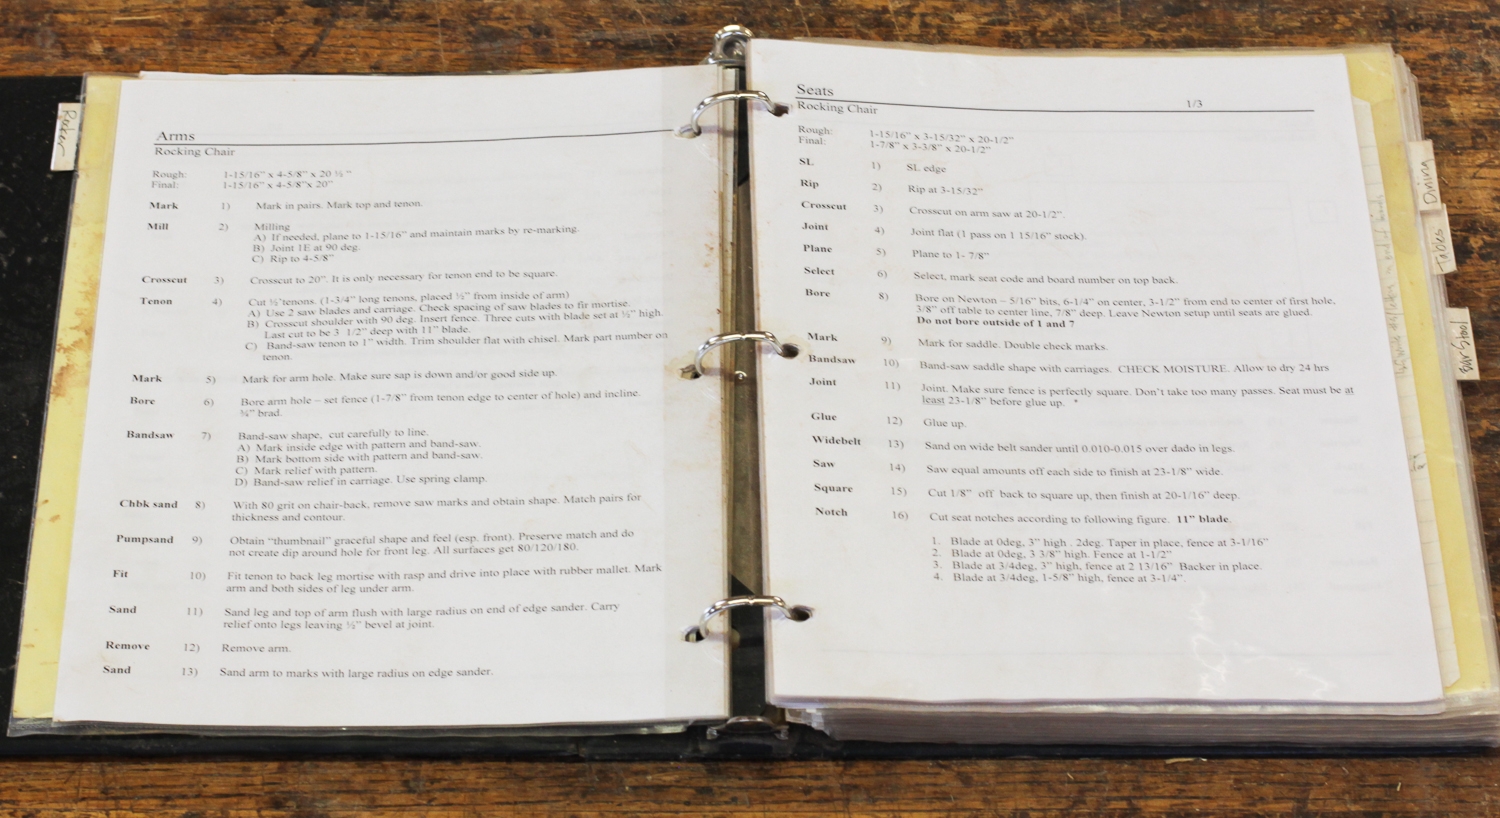 Rocker
Arms
Rocking Chair
Rough: 1-15/16" x 4-5/8" x 20 ½ "
Final: 1-15/16" x 4-5/8"x 20"
Mark 1) Mark in pairs. Mark top and tenon.
Mill 2) Milling
A) If needed, plane to 1-15/16" and maintain marks by re-marking.
B) Joint 1E at 90 deg.
C) Rip to 4-5/8"
Crosscut 3) Crosscut to 20". It is only necessary for tenon end to be square.
Tenon 4) Cut ½'tenons. (1-3/4" long tenons, placed ½" from inside of arm)
A) Use 2 saw blades and carriage. Check spacing of saw blades to fir mortise.
B) Crosscut shoulder with 90 deg. Insert fence. Three cuts with blade set at ½" high.
Last cut to be 3 1/2" deep with 11" blade.
C) Band-saw tenon to 1" width. Trim shoulder flat with chisel. Mark part number on
tenon.
Mark 5) Mark for arm hole. Make sure sap is down and/or good side up.
Bore 6) Bore arm hole – set fence (1-7/8" from tenon edge to center of hole) and incline.
¾" brad.
Bandsaw 7) Band-saw shape, cut carefully to line.
A) Mark inside edge with pattern and band-saw.
B) Mark bottom side with pattern and band-saw.
C) Mark relief with pattern.
D) Band-saw relief in carriage. Use spring clamp.
Chbk sand 8) With 80 grit on chair-back, remove saw marks and obtain shape. Match pairs for
thickness and contour.
Pumpsand 9) Obtain "thumbnail" graceful shape and feel (esp. front). Preserve match and do
not create dip around hole for front leg. All surfaces get 80/120/180.
Fit 10) Fit tenon to back leg mortise with rasp and drive into place with rubber mallet. Mark
arm and both sides of leg under arm.
Sand 11) Sand leg and top of arm flush with large radius on end of edge sander. Carry
relief onto legs leaving ½" bevel at joint.
Remove 12) Remove arm.
Sand 13) Sand arm to marks with large radius on edge sander.
Seats
Rocking Chair 1/3
Rough: 1-15/16" x 3-15/32" x 20-1/2"
Final: 1-7/8" x 3-3/8" x 20-1/2"
SL 1) SL edge
Rip 2) Rip at 3-15/32"
Crosscut 3) Crosscut on arm saw at 20-1/2".
Joint 4) Joint flat (1 pass on 1 15/16" stock).
Plane 5) Plane to 1- 7/8"
Select 6) Select, mark seat code and board number on top back.
Bore 8) Bore on Newton – 5/16" bits, 6-1/4" on center, 3-1/2" from end to center of first hole,
3/8" off table to center line, 7/8" deep. Leave Newton setup until seats are glued.
Do not bore outside of 1 and 7
Mark 9) Mark for saddle. Double check marks.
Bandsaw 10) Band-saw saddle shape with carriages. CHECK MOISTURE. Allow to dry 24 hrs
Joint 11) Joint. Make sure fence is perfectly square. Don't take too many passes. Seat must be at
least 23-1/8" before glue up. *
Glue 12) Glue up.
Widebelt 13) Sand on wide belt sander until 0.010-0.015 over dado in legs.
Saw 14) Saw equal amounts off each side to finish at 23-1/8" wide.
Square 15) Cut 1/8" off back to square up, then finish at 20-1/16" deep.
Notch 16) Cut seat notches according to following figure. 11" blade.
1. Blade at 0deg, 3" high . 2deg. Taper in place, fence at 3-1/16"
2. Blade at 0deg, 3 3/8" high. Fence at 1-1/2"
3. Blade at 3/4deg, 3" high, fence at 2 13/16" Backer in place.
4. Blade at 3/4deg, 1-5/8" high, fence at 3-1/4".
Dining
Tables
Bar Stool